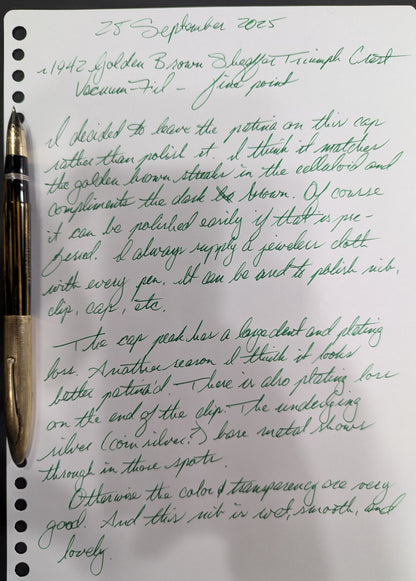 25 September 2025
~1942 Golden Brown Sheaffer Triumph Crest
Vacuum-Fil - fine point
I decided to leave the patina on this cap
rather than polish it. I think it matches
the golden brown streaks in the celluloid and
compliments the dark brown. Of course
it can be polished easily if that is pre-
ferred. I always supply a jewelers cloth
with every pen. It can be used to polish nib,
clip, cap, etc.
The cap peak has a large dent and plating
loss. Another reason I think it looks
better patina'd. There is also plating loss
on the end of the clip. The underlying
silver (coin silver?) base metal shows
through in those spots.
Otherwise the color & transparency are very
good. And this nib is wet, smooth, and
lovely.